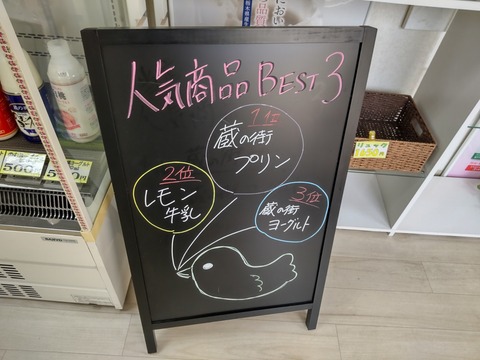 人気商品 BEST 3
1位
蔵の街
プリン
2位
レモン
牛乳
3位
蔵の街
ヨーグルト
におい
品質
SANYO